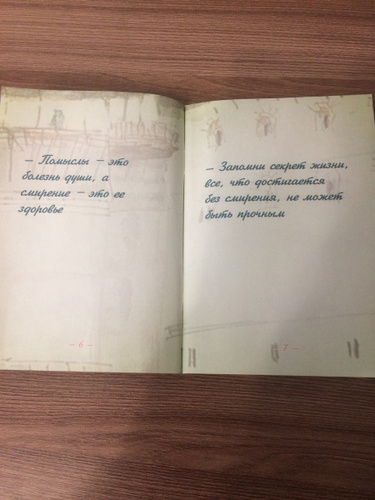 – Помыслы – это
болезнь души, а
смирение – это ее
здоровье
– 6 –
– Запомни секрет жизни,
все, что достигается
без смирения, не может
быть прочным
7 –